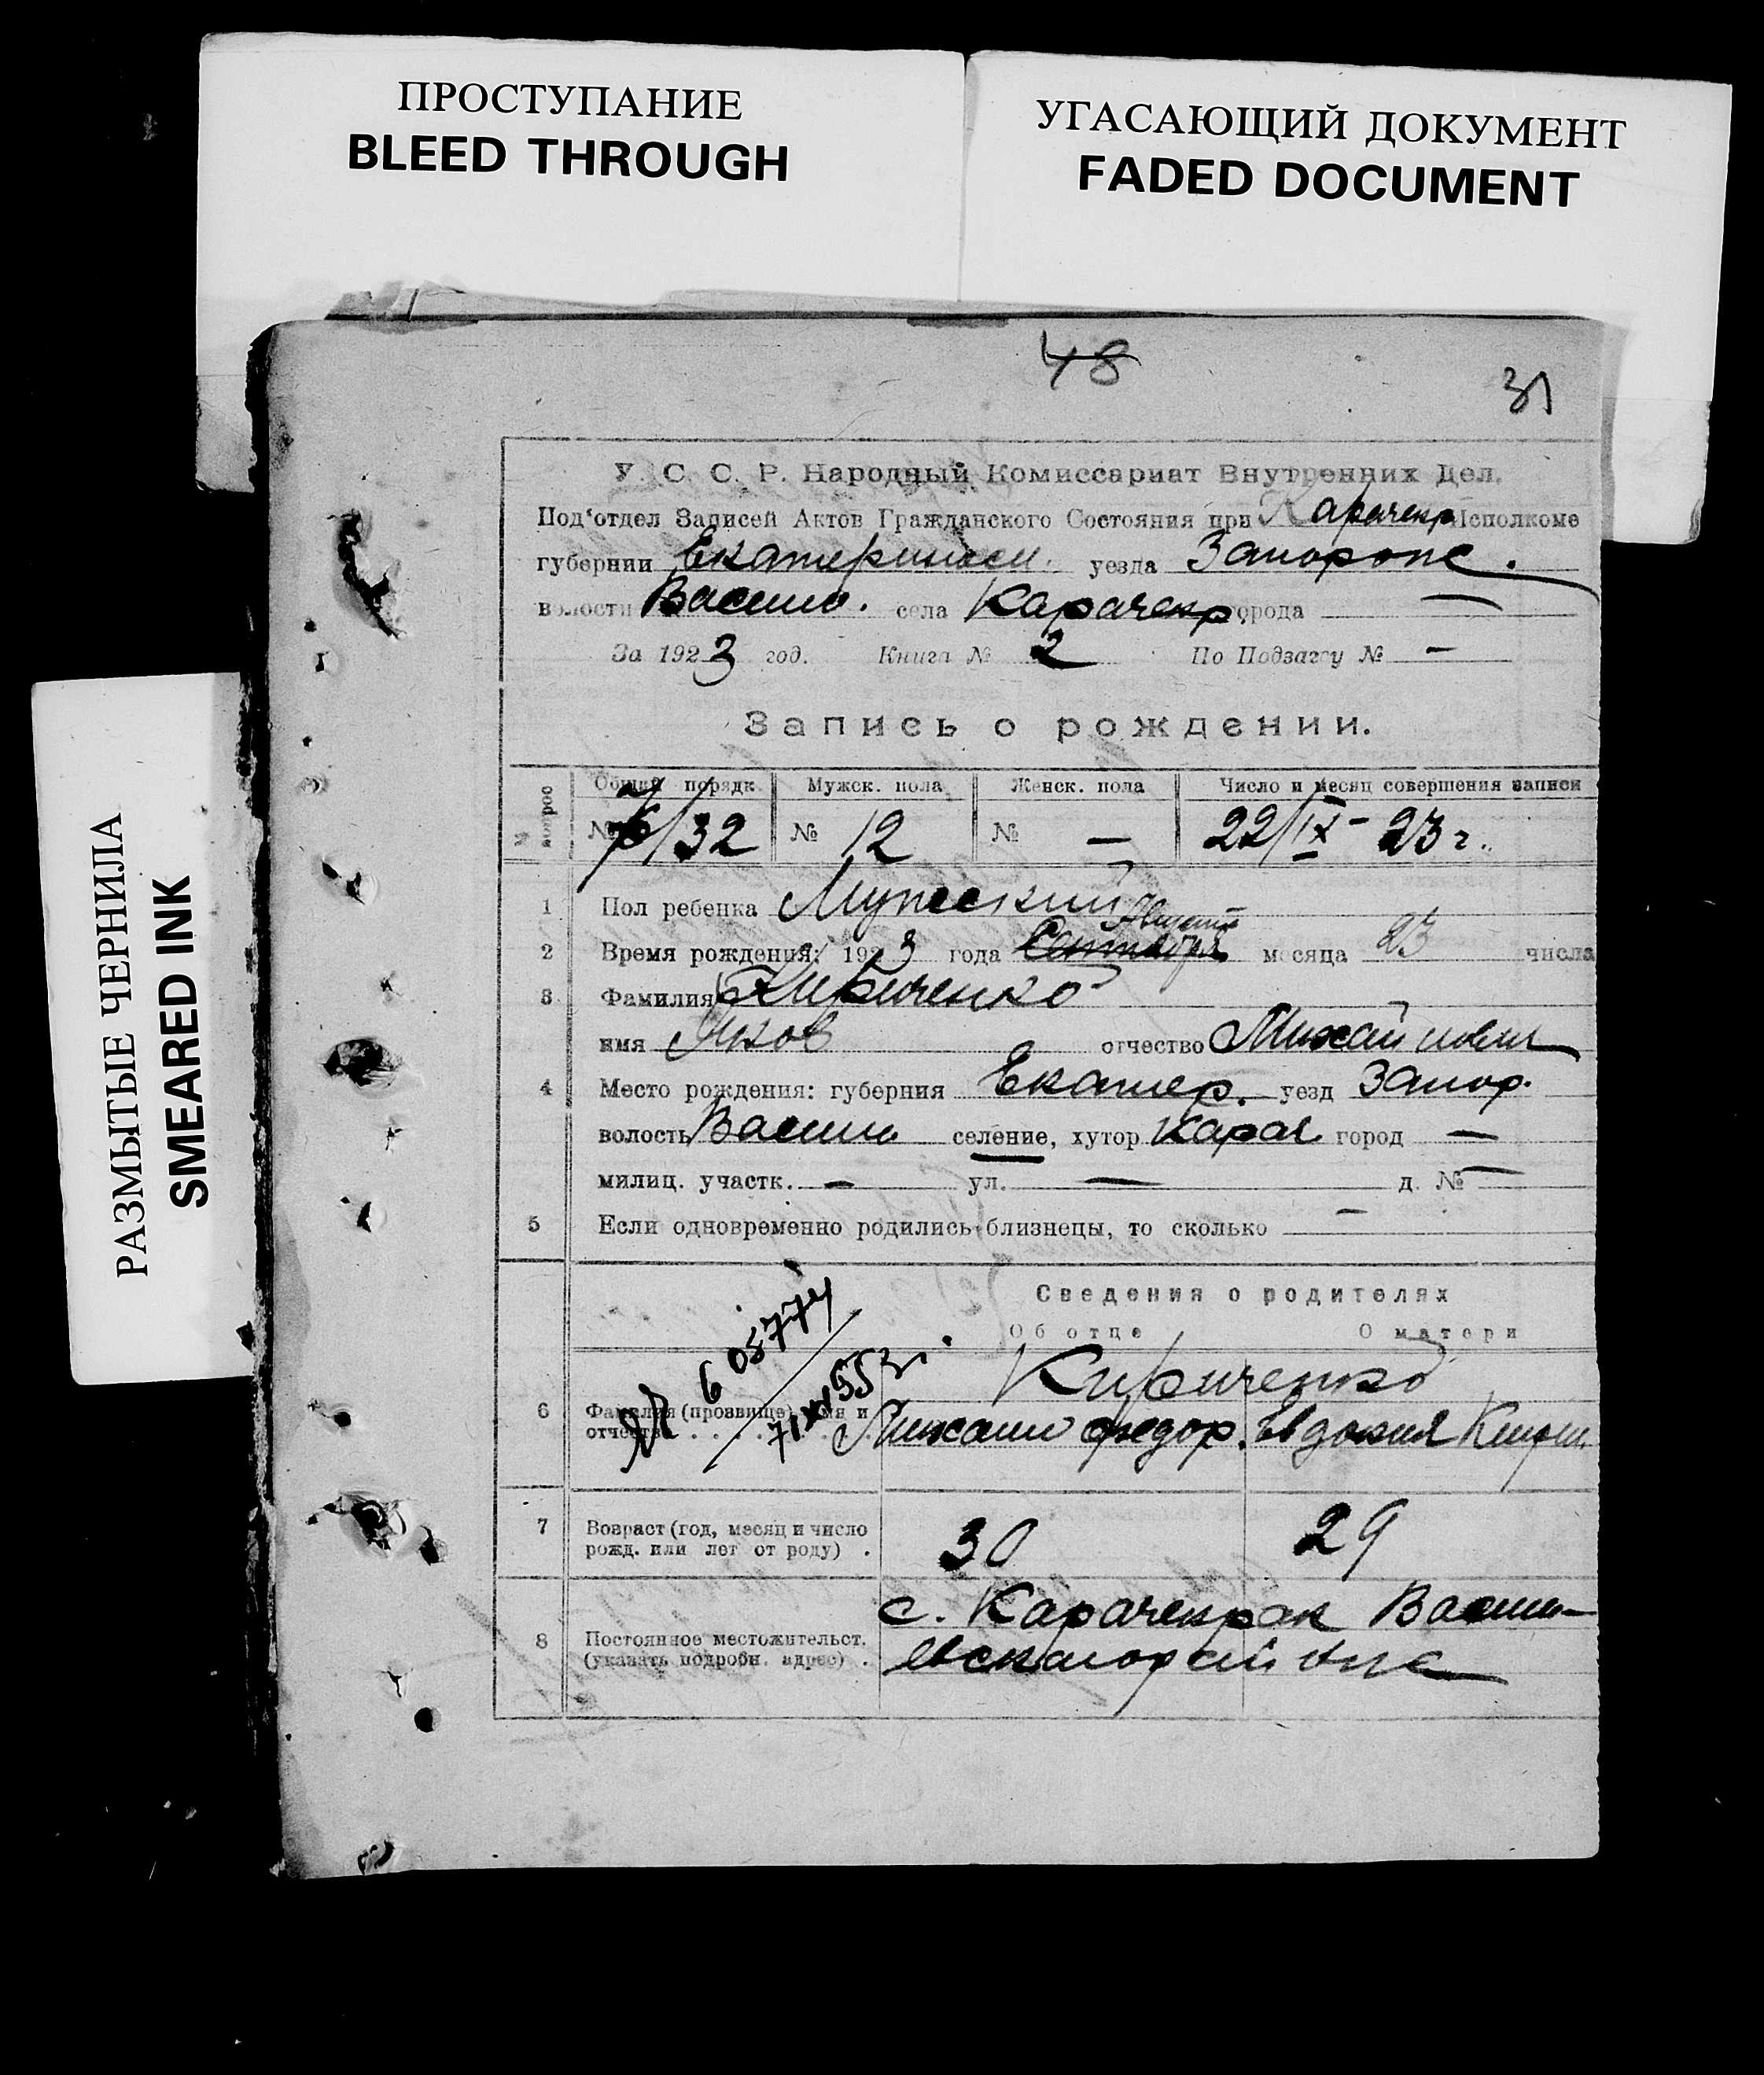 ПРОСТУПАНИЕ
BLEED THROUGH
УГАСАЮЩИЙ ДОКУМЕНТ
FADED DOCUMENT
РАЗМЫТЫЕ ЧЕРНИЛА
SMEARED INK
48
31
У. С. С. Р. Народный Комиссариат Внутренних Дел.
Под'отдел Записей Актов Гражданского Состояния при Карачекр Исполкоме
губернии Екатериносл. уезда Запорож.
волости Васил. села Карачекр. города —
За 1923 год. Книга № 2 По Подзагсу № —
Запись о рождении.
№ вопрос Общий порядк. Мужск. пола Женск. пола Число и месяц совершения записи
№ /32 № 12 № — 22/IX - 23 г.
1 Пол ребенка Мужеский
Августа
2 Время рождения: 1923 года Сентября месяца 23 числа
3 Фамилия Кириченко
имя Яков отчество Михайлович
4 Место рождения: губерния Екатер. уезд Запор.
волость Васил селение, хутор Карач город —
милиц. участк. — ул. — д. № —
5 Если одновременно родились близнецы, то сколько —
Сведения о родителях
Об отце О матери
ЯР 605774
Кириченко
6 Фамилия (прозвище) имя и отчеств. Михаил Федор. Евдокия
7 Возраст (год, месяц и число рожд. или лет от роду) . 30 29
8 Постоянное местожительст. (указать подробн. адрес) . с. Карачекрак Васил-
евского района